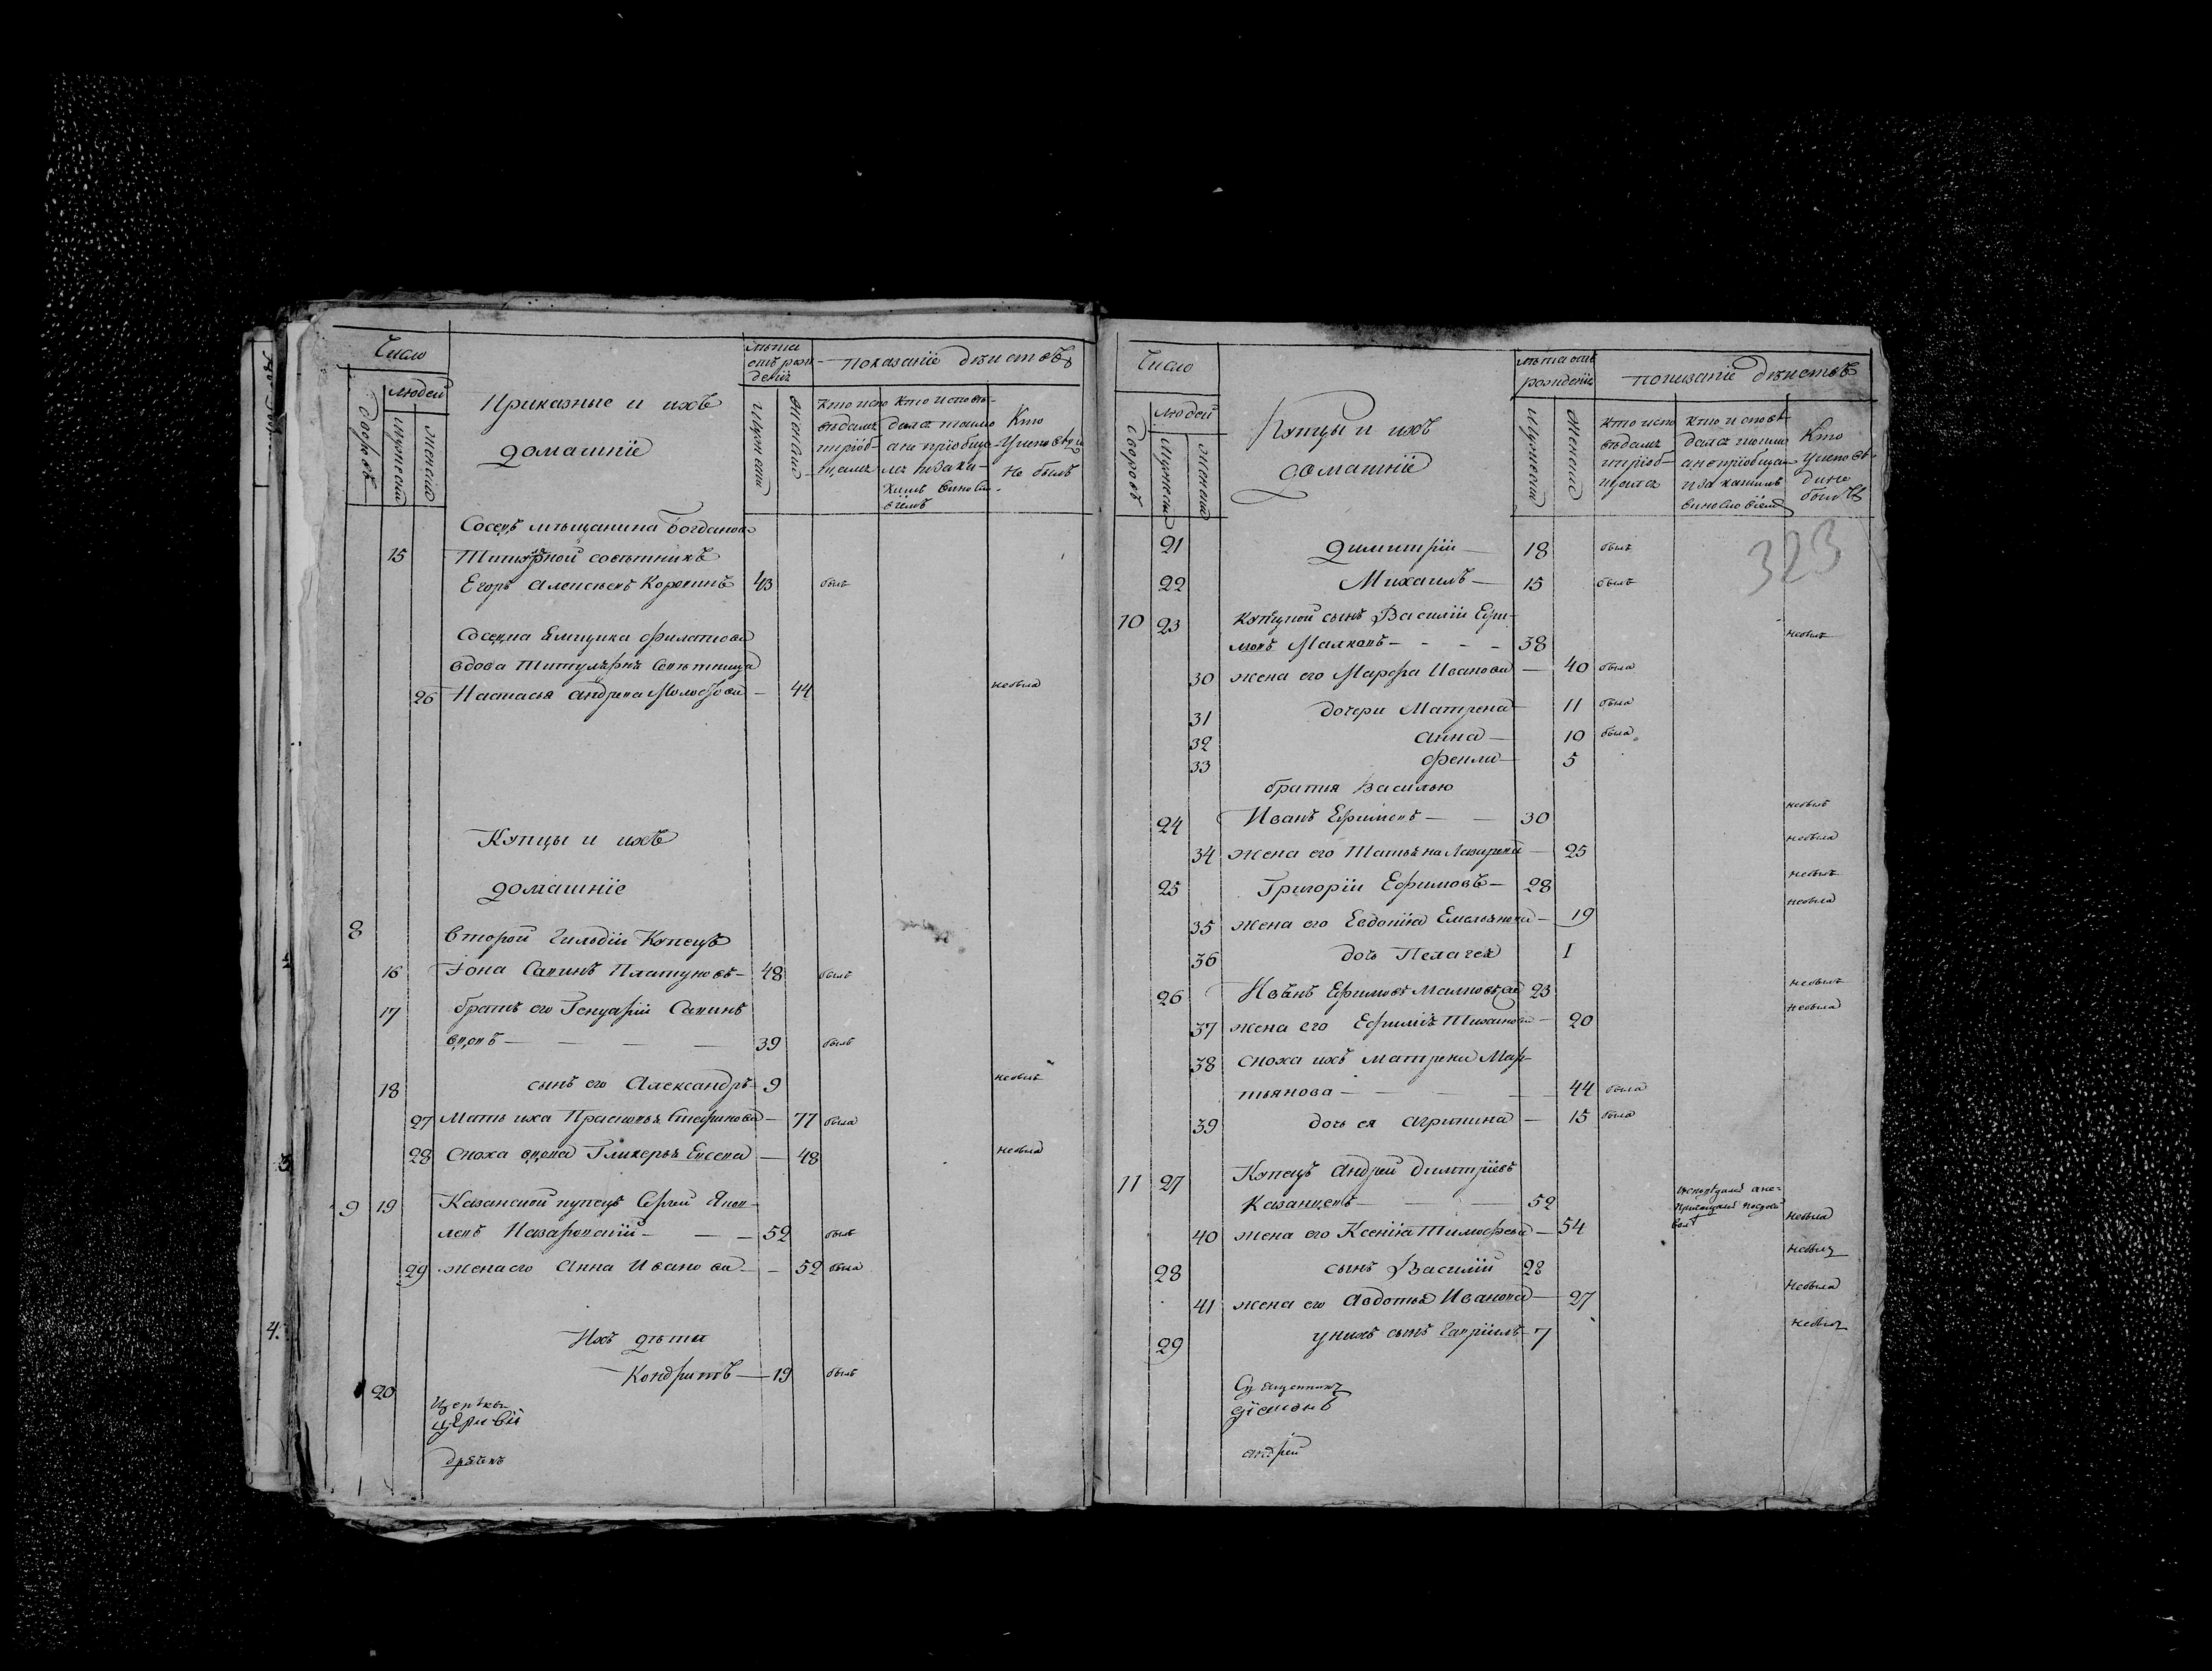 Число
людей
дворовъ
Мужеска
Женска
Приказные и ихъ
домашніе
лѣта
отъ рож-
денія
Мужеска
Женска
показаніе дѣиствъ
Кто испо
вѣдался
и пріоб-
щался
Кто исповѣ-
дался токмо
а не пріобща-
лся и за ка-
кимъ винос-
віемъ
Кто
у исповѣди
не былъ
Сосѣдъ мѣщанина Богданова
15 Титулярной совѣтникъ
Егоръ Алексѣевъ 43 былъ
Сосѣдка Ямщика Филатова
вдова Титулярна Совѣтница
26 Настасья Андреева 44 небыла
Купцы и ихъ
домашніе
8 второй Гильдіи Купецъ
16 Іона Савинъ Платуновъ 48 былъ
17 братъ его Генуарій Савинъ
39 былъ
18 сынъ его Александръ 9 небылъ
27 Мать ихъ Прасковья Стефанова 77 была
28 Сноха Гликерья 48 небыла
9 19 Казанской купецъ Сергей Яков-
левъ Назаровскій 52 былъ
29 жена его Анна Иванова 52 была
Ихъ дѣти
20 Кондратъ 19 былъ
Число
людей
дворовъ
Мужеска
Женска
Купцы и ихъ
домашніе
лѣта отъ
рожденія
Мужеска
Женска
показаніе дѣиствъ
Кто испо
вѣдался
и пріоб-
щался
Кто исповѣ-
дался токмо
а не пріобща
и за какимъ
Кто
у исповѣ-
ди не
былъ
323
21 Димитрій 18 былъ
22 Михаилъ 15 былъ
10 23 Купецкой сынъ Василій Ефи-
мовъ Малковъ 38 небылъ
30 жена его Марфа Иванова 40 была
31 дочери Матрена 11 была
32 Анна 10 была
33 Фекла 5
братья Василью
24 Иванъ Ефимовъ 30 небылъ
34 жена его Татьяна Лазарева 25 небыла
25 Григорій Ефимовъ 28 небылъ
35 жена его Евдокія Емельянова 19 небыла
36 дочь Пелагея 1
26 Иванъ Ефимовъ 23 небылъ
37 жена его Ефимія Тиханова 20 небыла
38 Сноха ихъ Матрена Мар-
тьянова 44 была
39 дочь ея Агрипина 15 была
11 27 Купецъ Андрей Димитріевъ
Казанцевъ 52
40 жена его Ксенія Тимофеева 54 небыла
28 сынъ Василій 28 небылъ
41 жена его Авдотья Иванова 27 небыла
29 у нихъ сынъ Гавріилъ 7 небылъ
Священникъ
діаконъ
Андрей